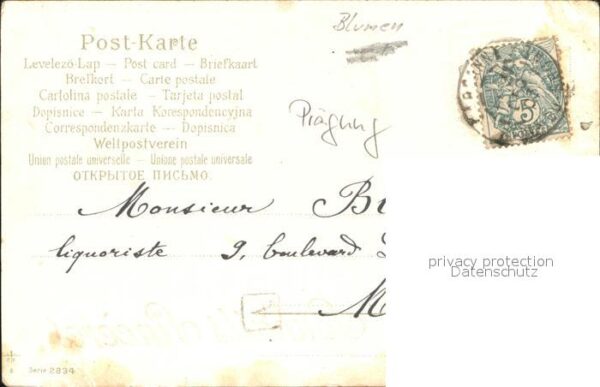 Blumen
Post-Karte
Levelezö-Lap — Post card — Briefkaart
Brefkort — Carte postale
Cartolina postale — Tarjeta postal
Dopisnice — Karta Korespondencyjna
Correspondenzkarte — Dopisnica
Weltpostverein
Union postale universelle — Unione postale universale
ОТКРЫТОЕ ПИСЬМО.
Prägung
5
Monsieur B
liquoriste 9, boulevard
M
privacy protection
Datenschutz
Serie 2834